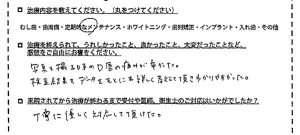 □ 治療内容を教えてください。（丸をつけてください）
むし歯・歯周病・定期的なメンテナンス・ホワイトニング・歯列矯正・インプラント・入れ歯・その他
□ 治療を終えられて、うれしかったこと、良かったこと、大変だったことなど、
感想をご自由にお書きください。
写真を撮るときの口唇の痛みが辛かった。
検査結果をデータをもとに詳しく教えて頂きわかりやすかった。
□ 来院されてから治療が終わるまで受付や医師、衛生士のご対応はいかがでしたか？
丁寧に優しく対応して頂けた。